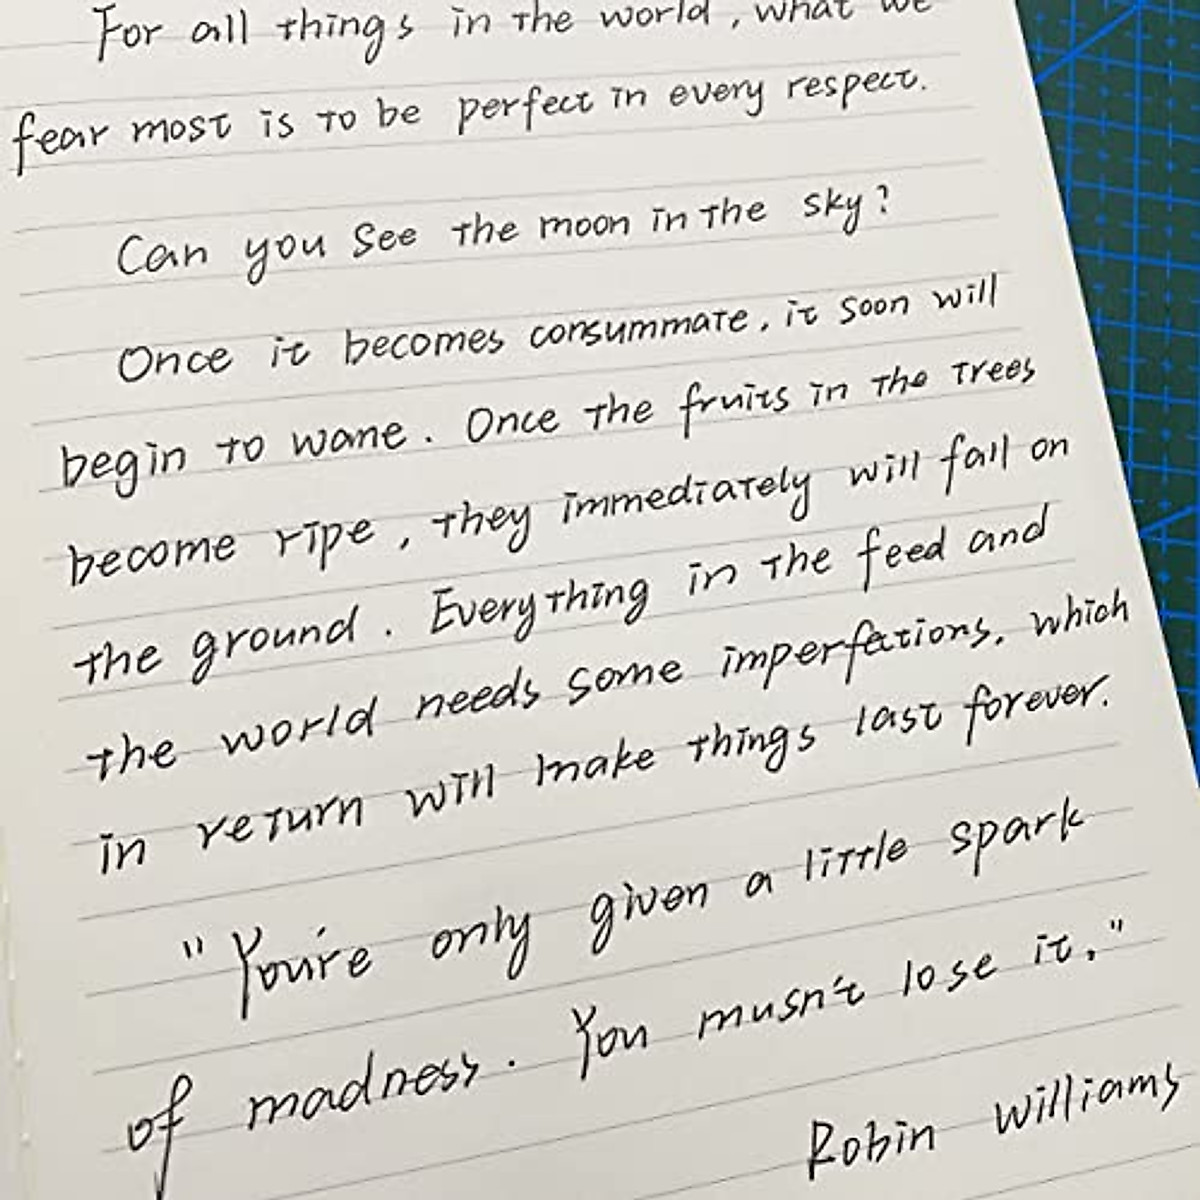 For all things in the world, what we
fear most is to be perfect in every respect.
Can you see the moon in the sky?
Once it becomes consummate, it soon will
begin to wane. Once the fruits in the trees
become ripe, they immediately will fall on
the ground. Everything in the feed and
the world needs some imperfections, which
in return will make things last forever.
"You're only given a little spark
of madness. You musn't lose it."
Robin Williams